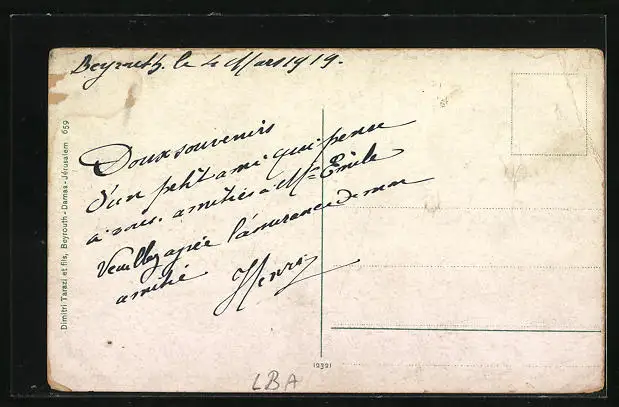 Beyrouth. le 4 Mars 1919.
Doux souvenirs
d'un petit ami qui pense
à vous. amitiés à Mr Emile
Veuillez agrée l'assurance de mon
amitié
Henri
Dimitri Tarazi et fils, Beyrouth-Damas-Jérusalem 659
12321
LBA